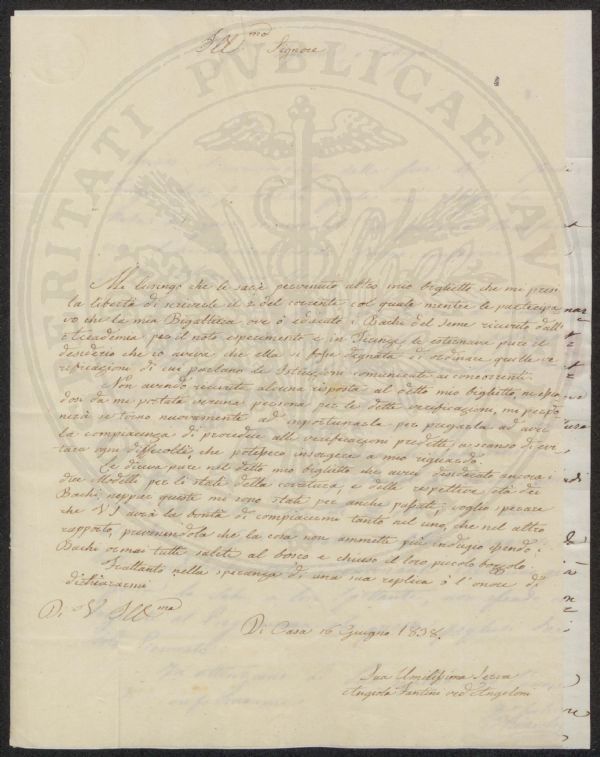 Ill.mo Signore
Mi lusingo che le sarà pervenuto altro mio biglietto che mi presi
la libertà di scriverle il 2 del corrente col quale mentre le partecipa
vo che la mia Bigattiera ove ò educato i Bachi del seme ricevuto dall'
Accademia per il noto esperimento e in Firenze le esternava pure il
desiderio che io aveva che ella si fosse degnata di ordinare quelle ve
rificazioni di cui parlano le Istruzioni comunicate ai concorrenti.
Non avendo ricevuta alcuna risposta al detto mio biglietto, ne essen
don da me portata veruna persona per le dette verificazioni, mi perdo
nerà se torno nuovamente ad importunarla per pregarla ad aver
la compiacenza di procedere alle verificazioni predette a scanso di evi
tare ogni difficoltà che potesse insorgere a mio riguardo.
Le diceva pure nel detto mio biglietto che avrei desiderato ancora i
due Modelli per lo stato della covatura, e delle respettive età dei
Bachi; neppur questi mi sono stati per anche passati; voglio sperare
che VS avrà la bontà di compiacermi tanto nel uno, che nel altro
rapporto, prevenendola che la cosa non ammette più indugio essendo i
Bachi ormai tutti saliti al bosco e chiuso il loro piccolo bozzolo.
Frattanto nella speranza di una sua replica ò l'onore di
dichiararmi
Di V. Ill.ma
Di Casa 16 Giugno 1838.
Sua Umilissima Serva
Angiola Fantini ved Angeloni
VERITATI PVBLICAE